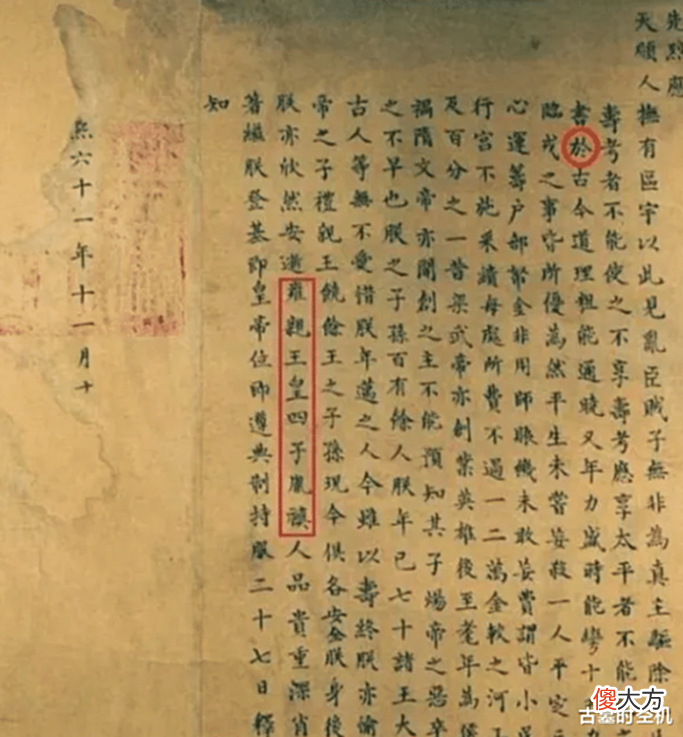 先烈應
天順人撫有區宇以此見亂臣賊子無非為真主驅除
壽考者不能使之不享壽考應享太平者不能
書於古今道理粗能通曉又年力盛時能彎十力
臨戎之事皆所優為然平生未嘗妄殺一人平定
心運籌户部帑金非用師賑饑未敢妄費謂皆小民
行宮不施采繢每處所費不過一二萬金較之河工
及百分之一昔梁武帝亦創業英雄後至耄年為侯
禍隋文帝亦開創之主不能預知其子煬帝之惡卒
之不早也朕之子孫百有餘人朕年已七十諸王大
古人等無不愛惜朕年邁之人今雖以壽終朕亦愉
帝之子禮親王饒餘王之子孫現今俱各安全朕身後
朕亦欣然安逝雍親王皇四子胤禛人品貴重深肖
著繼朕登基即皇帝位即遵典制持服二十七日釋
知
熙六十一年十一月十
傻大方